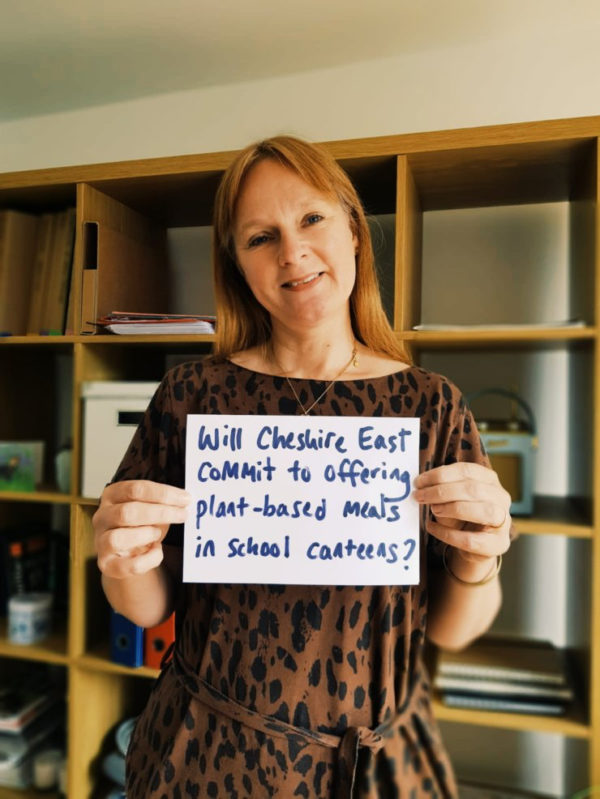 Will Cheshire East
commit to offering
plant-based meals
in school canteens?